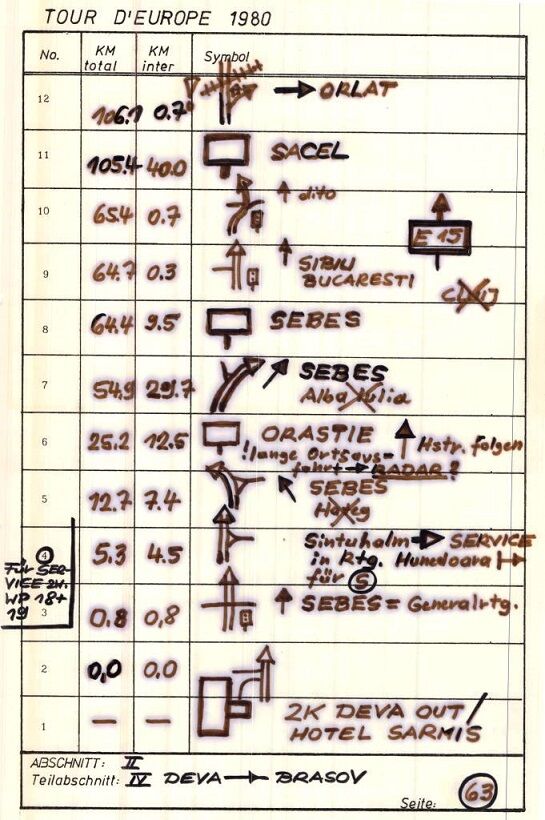 TOUR D'EUROPE 1980
No. KM total KM inter Symbol
12 106.1 0.7 ORLAT
11 105.4 40.0 SACEL
10 65.4 0.7 dito
E 15
9 64.7 0.3 SIBIU
BUCARESTI
CLUJ
8 64.4 9.5 SEBES
7 54.9 29.7 SEBES
Alba Iulia
6 25.2 12.5 ORASTIE Hstr. folgen
! lange Ortsaus-
fahrt → RADAR ?
5 12.7 7.4 SEBES
Hateg
4 5.3 4.5 Sintuhalm → SERVICE
in Rtg. Hunedoara
für S
FÜR SER-
VICE ZK.
WP 18+
19
3 0.8 0,8 SEBES = Generalrtg.
2 0,0 0,0
1 — — ZK DEVA OUT /
HOTEL SARMIS
ABSCHNITT: II
Teilabschnitt: IV DEVA → BRASOV
Seite: 63